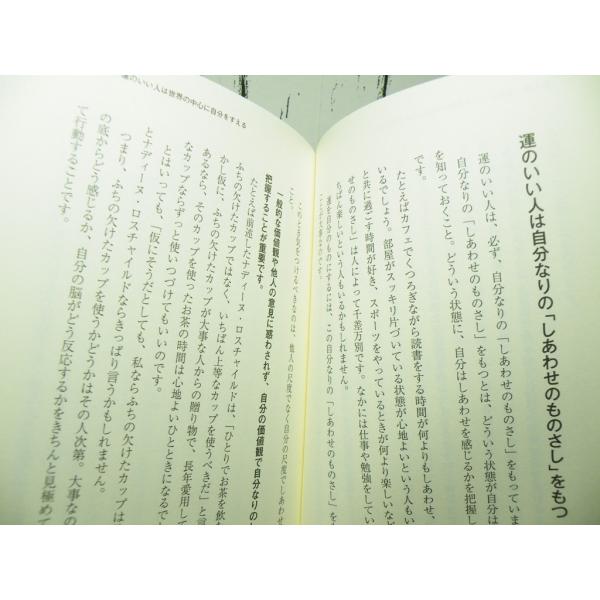 運のいい人は自分なりの「しあわせのものさし」をもつ
運のいい人は、必ず、自分なりの「しあわせのものさし」をもっていま
自分なりの「しあわせのものさし」をもつとは、どういう状態が自分は
を知っておくこと。どういう状態に、自分はしあわせを感じるかを把握し
です。
たとえばカフェでくつろぎながら読書をする時間が何よりもしあわせ、
いるでしょう。部屋がスッキリ片づいている状態が心地よいという人もい
と共に過ごす時間が好き、スポーツをやっているときが何より楽しいなど
せのものさし」は人によって千差万別です。なかには仕事や勉強をしてい
ちばん楽しいという人もいるかもしれません。
運を自分のものにするには、この自分なりの「しあわせのものさし」を
ことが大事なのです。
運のいい人は世界の中心に自分をすえる
このとき気をつけるべきなのは、他人の尺度でなく自分の尺度でしあわせ
こと。
一般的な価値観や他人の意見に惑わされず、自分の価値観で自分なりの
把握することが重要です。
たとえば前述したナディーヌ・ロスチャイルドは、「ひとりでお茶を飲む
ふちの欠けたカップではなく、いちばん上等なカップを使うべきだ」と言
かし仮に、ふちの欠けたカップが大事な人からの贈り物で、長年愛用して
あるなら、そのカップを使ったお茶の時間は心地よいひとときになるで
なカップならずっと使いつづけてもいいのです。
とはいっても、「仮にそうだとしても、私ならふちの欠けたカップは
とナディーヌ・ロスチャイルドならきっぱり言うかもしれません。
つまり、ふちの欠けたカップを使うかどうかはその人次第。大事なの
の底からどう感じるか、自分の脳がどう反応するかをきちんと見極めて
て行動することです。